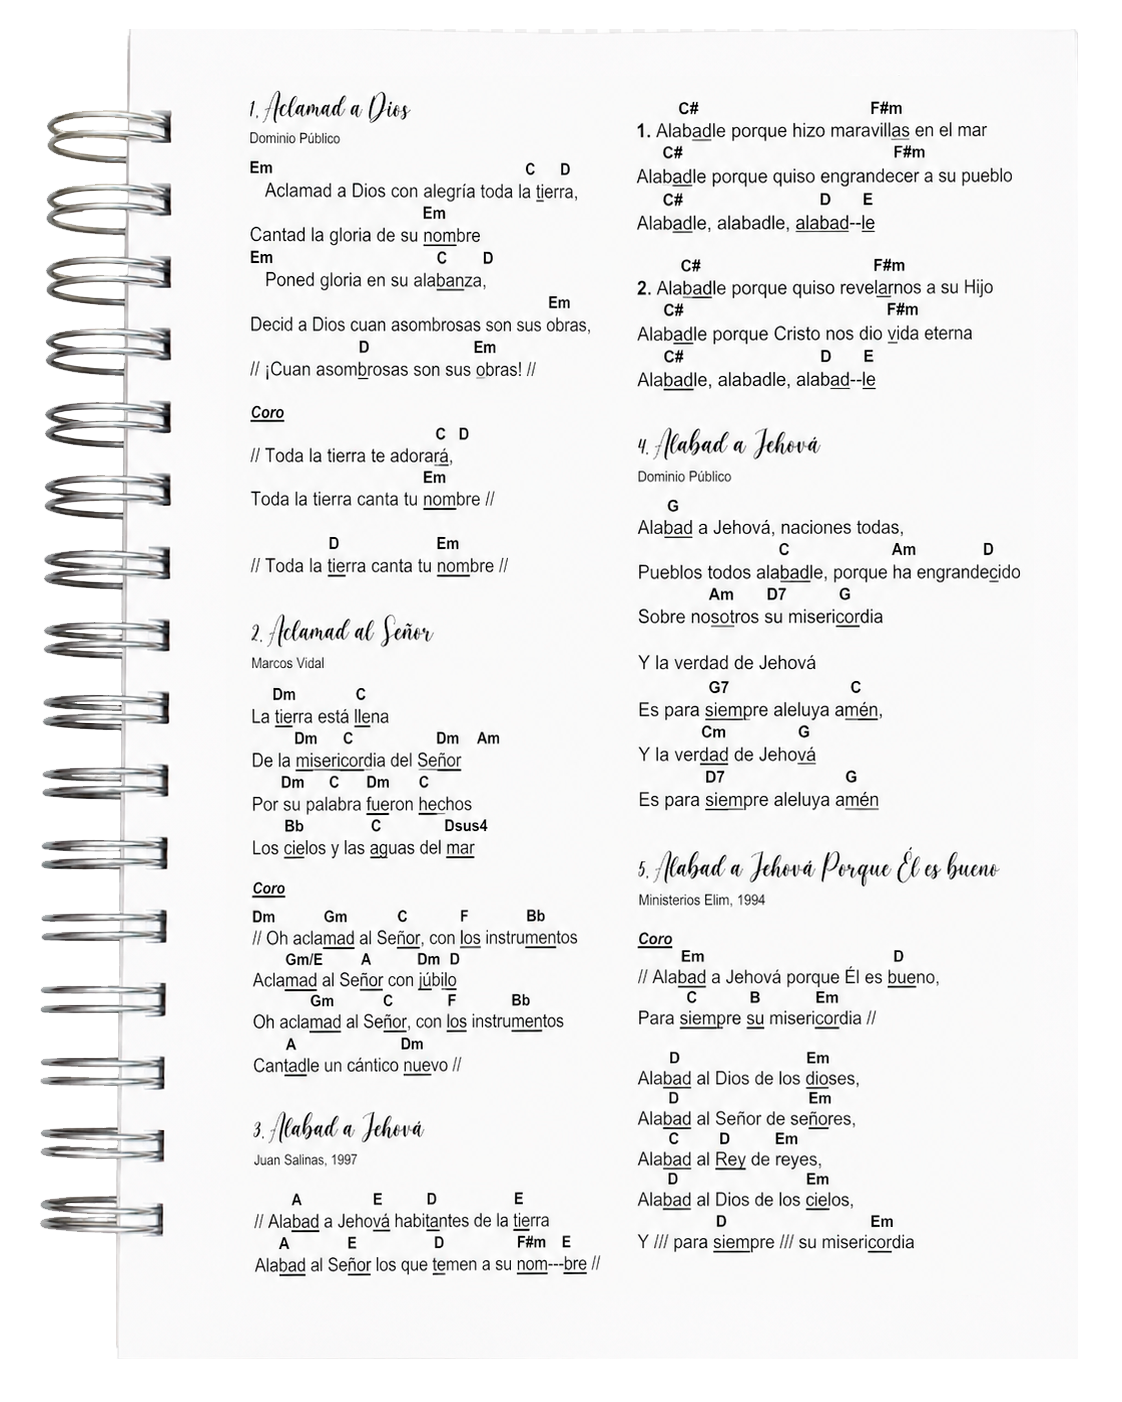 1. Aclamad a Dios
Dominio Público
Em C D
Aclamad a Dios con alegría toda la tierra,
Em
Cantad la gloria de su nombre
Em C D
Poned gloria en su alabanza,
Em
Decid a Dios cuan asombrosas son sus obras,
D Em
// ¡Cuan asombrosas son sus obras! //
Coro
C D
// Toda la tierra te adorará,
Em
Toda la tierra canta tu nombre //
D Em
// Toda la tierra canta tu nombre //
2. Aclamad al Señor
Marcos Vidal
Dm C
La tierra está llena
Dm C Dm Am
De la misericordia del Señor
Dm C Dm C
Por su palabra fueron hechos
Bb C Dsus4
Los cielos y las aguas del mar
Coro
Dm Gm C F Bb
// Oh aclamad al Señor, con los instrumentos
Gm/E A Dm D
Aclamad al Señor con júbilo
Gm C F Bb
Oh aclamad al Señor, con los instrumentos
A Dm
Cantadle un cántico nuevo //
3. Alabad a Jehová
Juan Salinas, 1997
A E D E
// Alabad a Jehová habitantes de la tierra
A E D F#m E
Alabad al Señor los que temen a su nom---bre //
C# F#m
1. Alabadle porque hizo maravillas en el mar
C# F#m
Alabadle porque quiso engrandecer a su pueblo
C# D E
Alabadle, alabadle, alabad--le
C# F#m
2. Alabadle porque quiso revelarnos a su Hijo
C# F#m
Alabadle porque Cristo nos dio vida eterna
C# D E
Alabadle, alabadle, alabad--le
4. Alabad a Jehová
Dominio Público
G
Alabad a Jehová, naciones todas,
C Am D
Pueblos todos alabadle, porque ha engrandecido
Am D7 G
Sobre nosotros su misericordia
Y la verdad de Jehová
G7 C
Es para siempre aleluya amén,
Cm G
Y la verdad de Jehová
D7 G
Es para siempre aleluya amén
5. Alabad a Jehová Porque Él es bueno
Ministerios Elim, 1994
Coro
Em D
// Alabad a Jehová porque Él es bueno,
C B Em
Para siempre su misericordia //
D Em
Alabad al Dios de los dioses,
D Em
Alabad al Señor de señores,
C D Em
Alabad al Rey de reyes,
D Em
Alabad al Dios de los cielos,
D Em
Y /// para siempre /// su misericordia